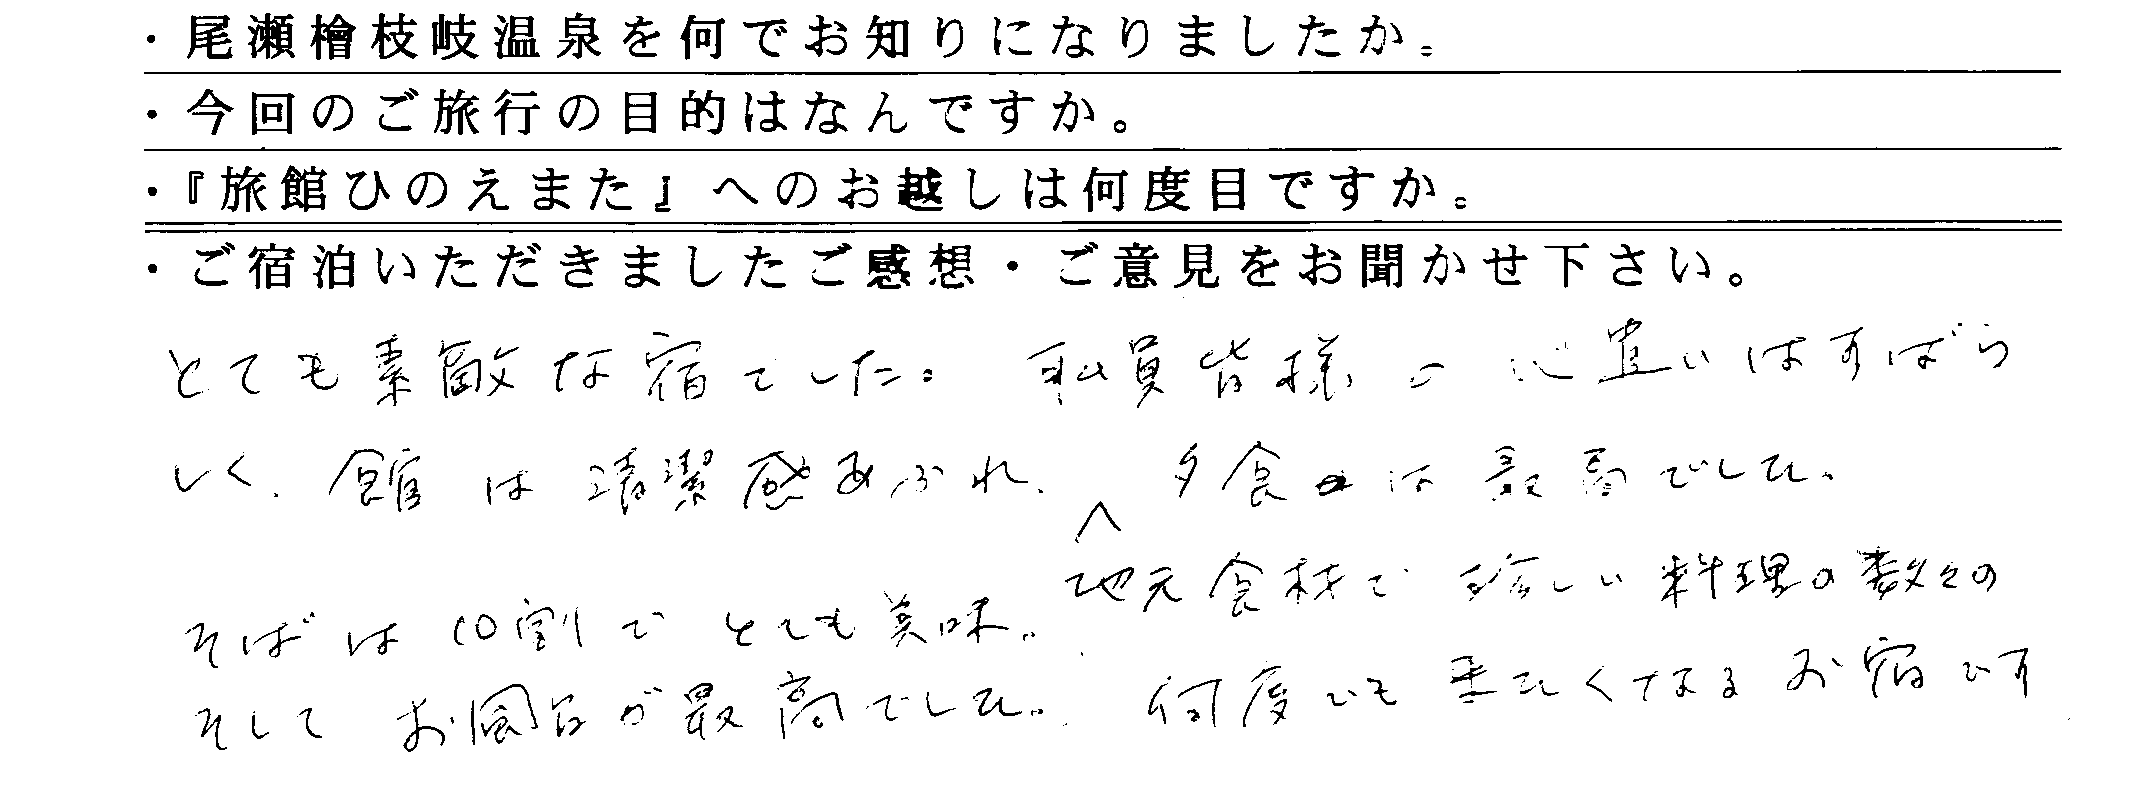 ・尾瀬檜枝岐温泉を何でお知りになりましたか。
・今回のご旅行の目的はなんですか。
・『旅館ひのえまた』へのお越しは何度目ですか。
・ご宿泊いただきましたご感想・ご意見をお聞かせ下さい。
とても素敵な宿でした。 員皆様の心遣いはすばら
しく、館は清潔感あふれ、夕食は最高でした。
地元食材で珍しい料理の数々の
そばは10割でとても美味。
そしてお風呂が最高でした。何度でも来たくなるお宿です